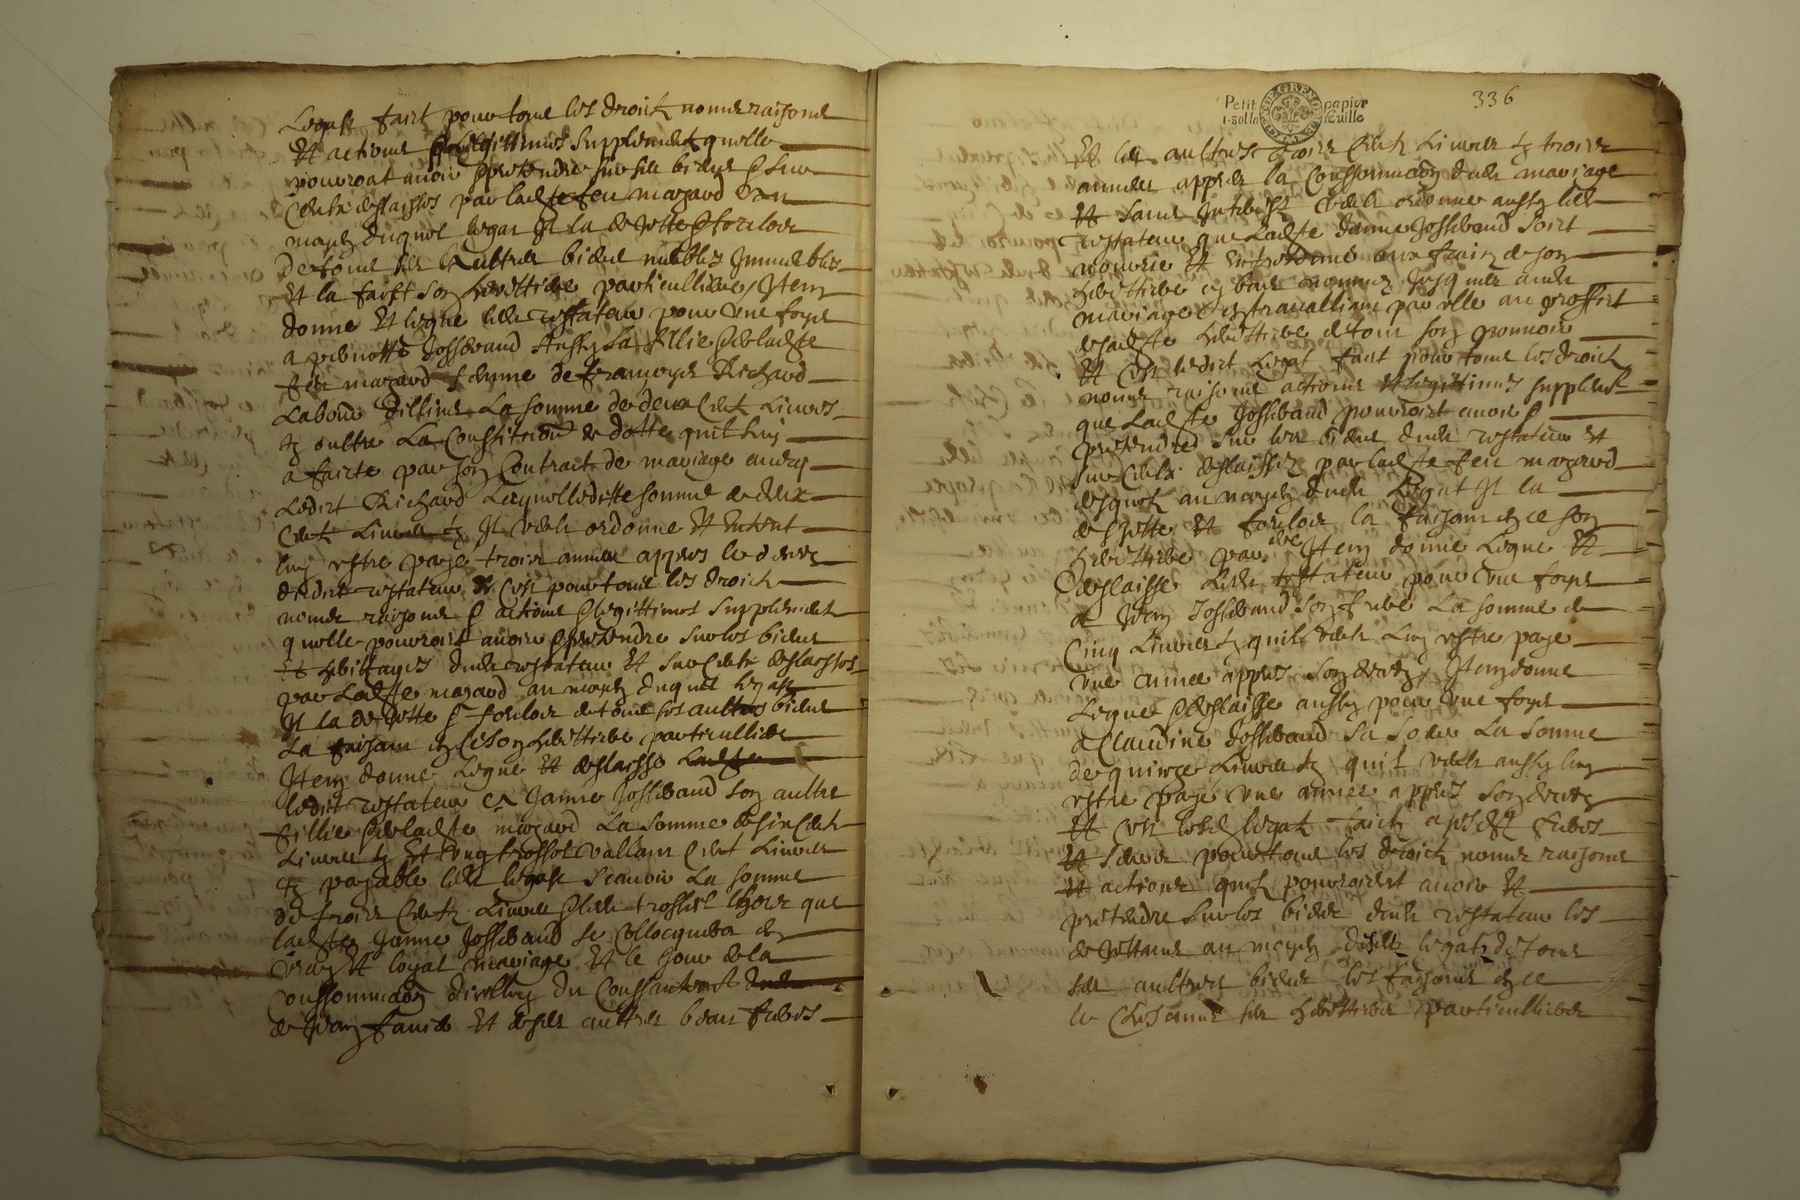 Legatz faict pour tous les droictz noms raisons
Et actions et legittimes supplementz quelle
pourroit avoir et pretendre sur ses biens et sur
Ceulx delaisses par ladte feu mazard Son
moyen duquel legat Il la dejette et forclost
de tous ses aultres biens meubles Immeubles
Et la faist son heretiere particulliere, Item
donne Et legue ledit testateur pour une foys
a pernette Josserand Aussy sa fillie et de ladte
feu mazard femme de françoys Richard
Labour dillins La somme de deux Centz Livres
tz oultre La Constitution de dotte quil luy
a faicte par son Contract de mariage avecq
Ledict Richard Laquelle dite somme de deux
Centz Livres tz Il veult ordonne Et entent
luy estre paye trois annees appres le deces
dudict testateur Et c'est pour tous les droictz
noms raisons et actions et legittimes supplementz
quelle pourroit avoir et pretendre sur les biens
Et heritages dudit testateur Et sur Ceulx delaisses
par Ladte mazard au moyen duquel legatz
Il la dejette et forclost de tous ses aultres biens
La faisant en Ce son heretiere particulliere
Item donne Legue Et delaisse Ladte
ledit testateur a Janne Josserand son aultre
fillie et de ladte mazard La somme de six Centz
Livres tz Et Ung trossel vallant Cent Livres
tz payable ledit legatz scavoir La somme
de trois Centz Livres et ledit trossel lhors que
ladte Janne Josserand se Collocquera en
vray Et loyal mariage Et le jour de la
Consommaon dicelluy du Consantement
de Jean favier Et de ses aultres beau freres
Petit papier
1 sol la feuille
336
Et les aultres trois Centz Livres tz trois
annees appres la Consommaon dudit mariage
Et sans Interest veult ordonne aussy ledit
testateur que Ladte Janne Josserand soit
nourrie Et entretenue aux frais de son
heretiere cy bas nommee Jusques audit
mariage en travalliant par elle au proffict
de ladte heretiere de tout son pouvoir
Et C'est ledict Legat faict pour tous les droictz
noms raisons actions Et legittimes supplementz
que Ladte Josserand pourroit avoir et
pretendre sur les biens dudit testateur Et
sur Ceulx delaissez par ladte feu mazard
desquelz au moyen dudit Legat Il la
dejette Et forclost la faisant en ce son
heretiere par ere Item donne Legue Et
delaisse Ledit testateur pour une foys
a Jean Josserand son frere La somme de
Cinq Livres tz quil veult Luy estre paye
une annee appres son deces, Item donne
Legue et delaisse aussy pour une foys
a Claudine Josserand Sa Soeur La somme
de quinze Livres tz quil veult aussy luy
estre paye une annee appres son deces
Et C'est lesd legatz faictz a ses dtz freres
Et Soeur pour tous les droictz noms raisons
Et actions quilz pourroient avoir Et
pretendre sur les biens dudit testateur les
dejettant au moyen desditz legatz de tous
ses aultres biens les faisans en ce
le Chescung ses heretiers particulliers